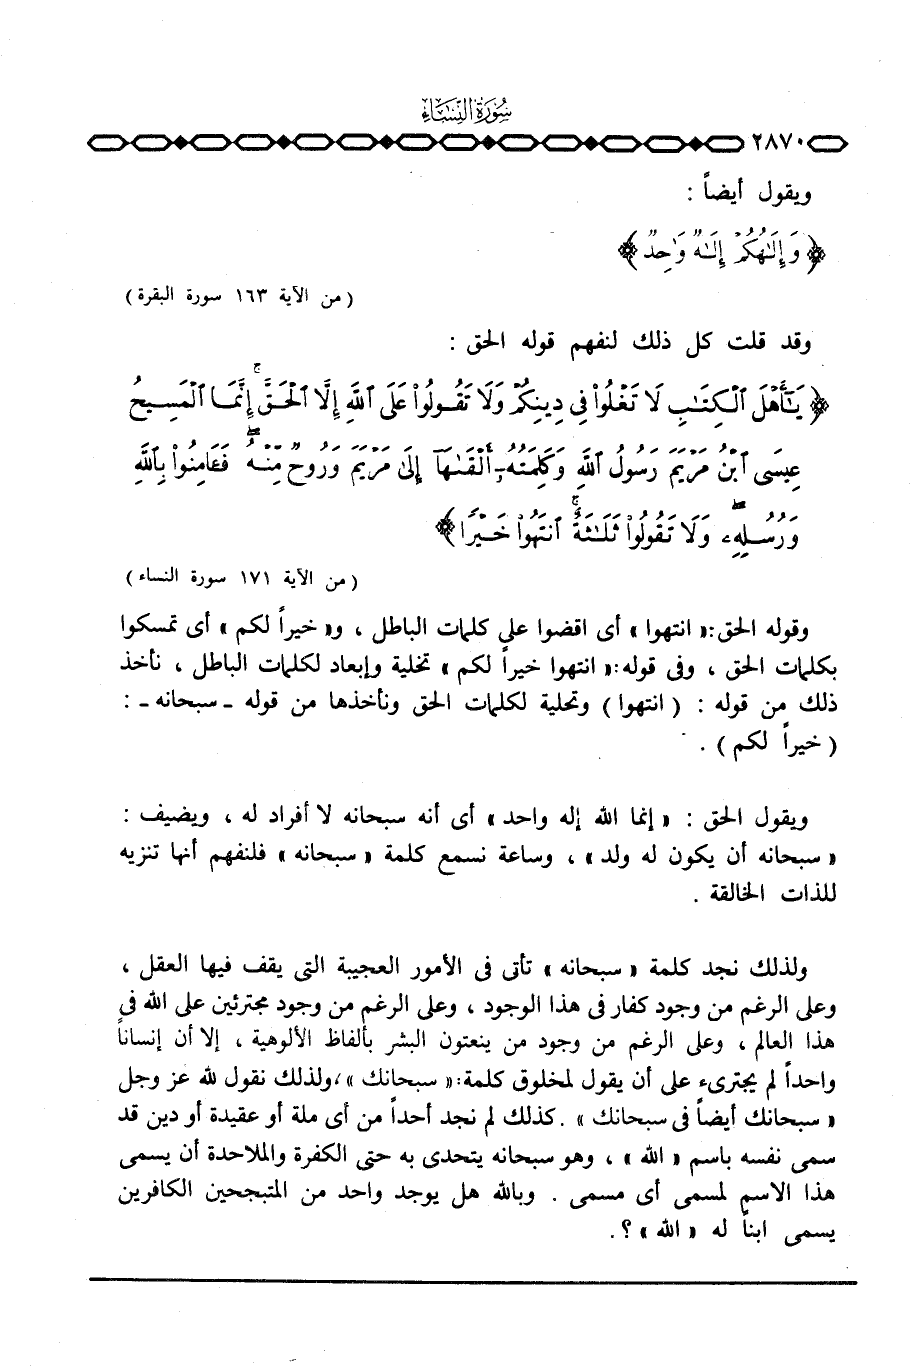 سورة النساء
٢٨٧٠
ويقول أيضاً :
﴿ وَإِلَٰهُكُمْ إِلَٰهٌ وَاحِدٌ ﴾
( من الآية ١٦٣ سورة البقرة )
وقد قلت كل ذلك لنفهم قوله الحق :
﴿ يَٰٓأَهْلَ ٱلْكِتَٰبِ لَا تَغْلُوا۟ فِى دِينِكُمْ وَلَا تَقُولُوا۟ عَلَى ٱللَّهِ إِلَّا ٱلْحَقَّ ۚ إِنَّمَا ٱلْمَسِيحُ
عِيسَى ٱبْنُ مَرْيَمَ رَسُولُ ٱللَّهِ وَكَلِمَتُهُۥٓ أَلْقَىٰهَآ إِلَىٰ مَرْيَمَ وَرُوحٌ مِّنْهُ ۖ فَـَٔامِنُوا۟ بِٱللَّهِ
وَرُسُلِهِۦ ۖ وَلَا تَقُولُوا۟ ثَلَٰثَةٌ ۚ ٱنتَهُوا۟ خَيْرًا ﴾
( من الآية ١٧١ سورة النساء )
وقوله الحق : « انتهوا » أى اقضوا على كلمات الباطل ، و« خيراً لكم » أى تمسكوا
بكلمات الحق ، وفى قوله : « انتهوا خيراً لكم » تخلية وإبعاد لكلمات الباطل ، نأخذ
ذلك من قوله : ( انتهوا ) وتحلية لكلمات الحق ونأخذها من قوله ـ سبحانه ـ :
( خيراً لكم ) .
ويقول الحق : « إنما الله إله واحد » أى أنه سبحانه لا أفراد له ، ويضيف :
« سبحانه أن يكون له ولد » ، وساعة نسمع كلمة « سبحانه » فلنفهم أنها تنزيه
للذات الخالقة .
ولذلك نجد كلمة « سبحانه » تأتى فى الأمور العجيبة التى يقف فيها العقل ،
وعلى الرغم من وجود كفار فى هذا الوجود ، وعلى الرغم من وجود مجترئين على الله فى
هذا العالم ، وعلى الرغم من وجود من ينعتون البشر بألفاظ الألوهية ، إلا أن إنساناً
واحداً لم يجترىء على أن يقول لمخلوق كلمة : « سبحانك » ، ولذلك نقول لله عز وجل
« سبحانك أيضاً فى سبحانك » . كذلك لم نجد أحداً من أى ملة أو عقيدة أو دين قد
سمى نفسه باسم « الله » ، وهو سبحانه يتحدى به حتى الكفرة والملاحدة أن يسمى
هذا الاسم لمسمى أى مسمى . وبالله هل يوجد واحد من المتبجحين الكافرين
يسمى ابناً له « الله » ؟ .